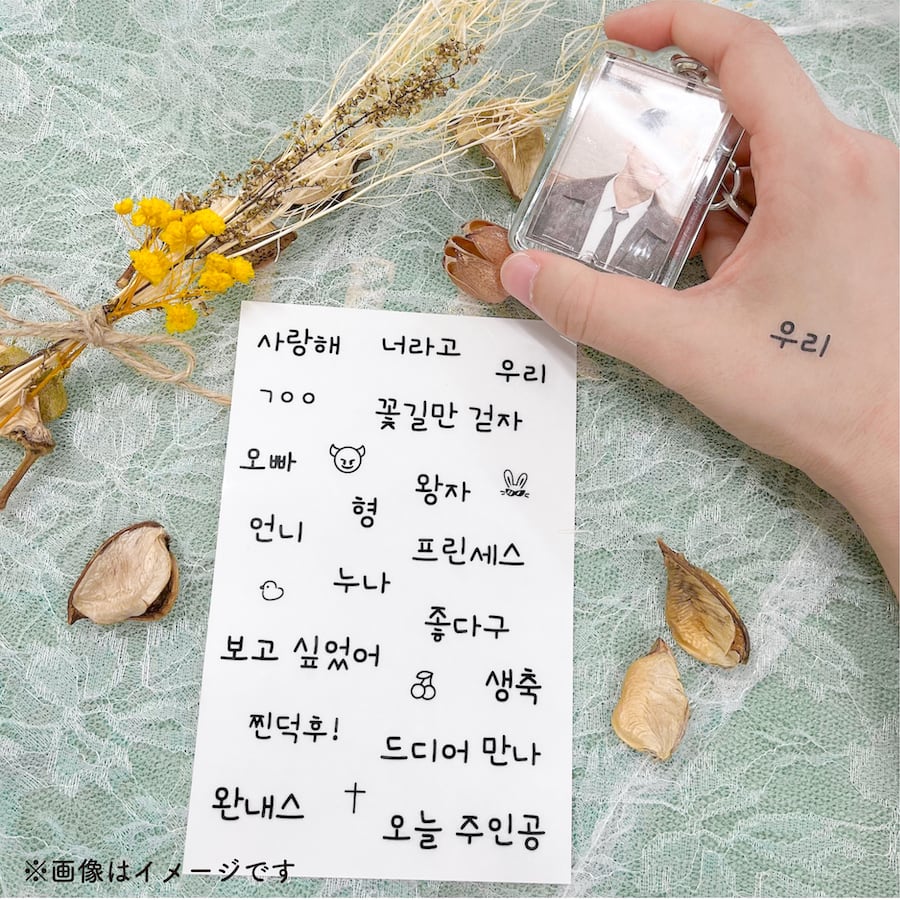 사랑해 너라고
우리
ㄱㅇㅇ
꽃길만 걷자
오빠
왕자
형
언니
프린세스
누나
좋다구
보고 싶었어
생축
찐덕후!
드디어 만나
완내스
오늘 주인공
우리
※画像はイメージです